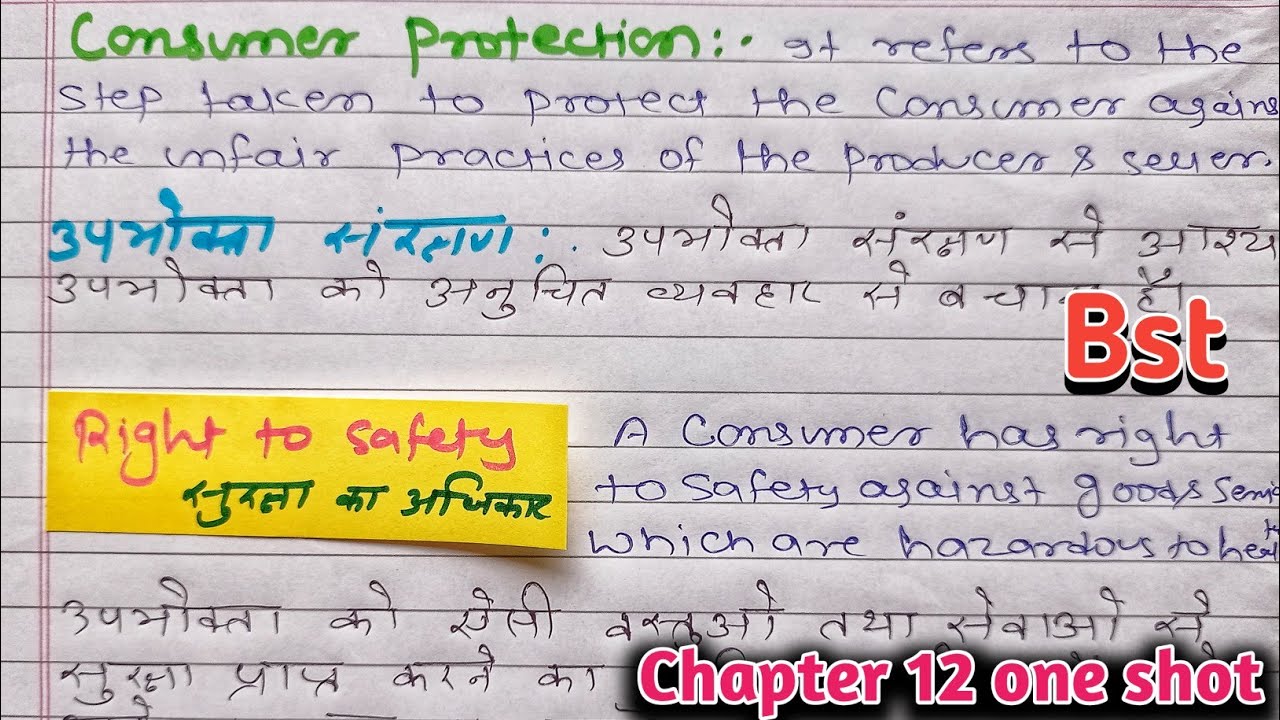 Consumer Protection:- It refers to the
Step taken to protect the Consumer agains
the unfair practices of the producer & seller.
उपभोक्ता संरक्षण :- उपभोक्ता संरक्षण से आश्य
उपभोक्ता को अनुचित व्यवहार से बचाना है।
Bst
Right to safety
सुरक्षा का अधिकार
A Consumer has right
to safety against goods & servi
which are hazardous to healt
उपभोक्ता को ऐसी वस्तुओ तथा सेवाओ से
सुरक्षा प्राप्त करने का
Chapter 12 one shot